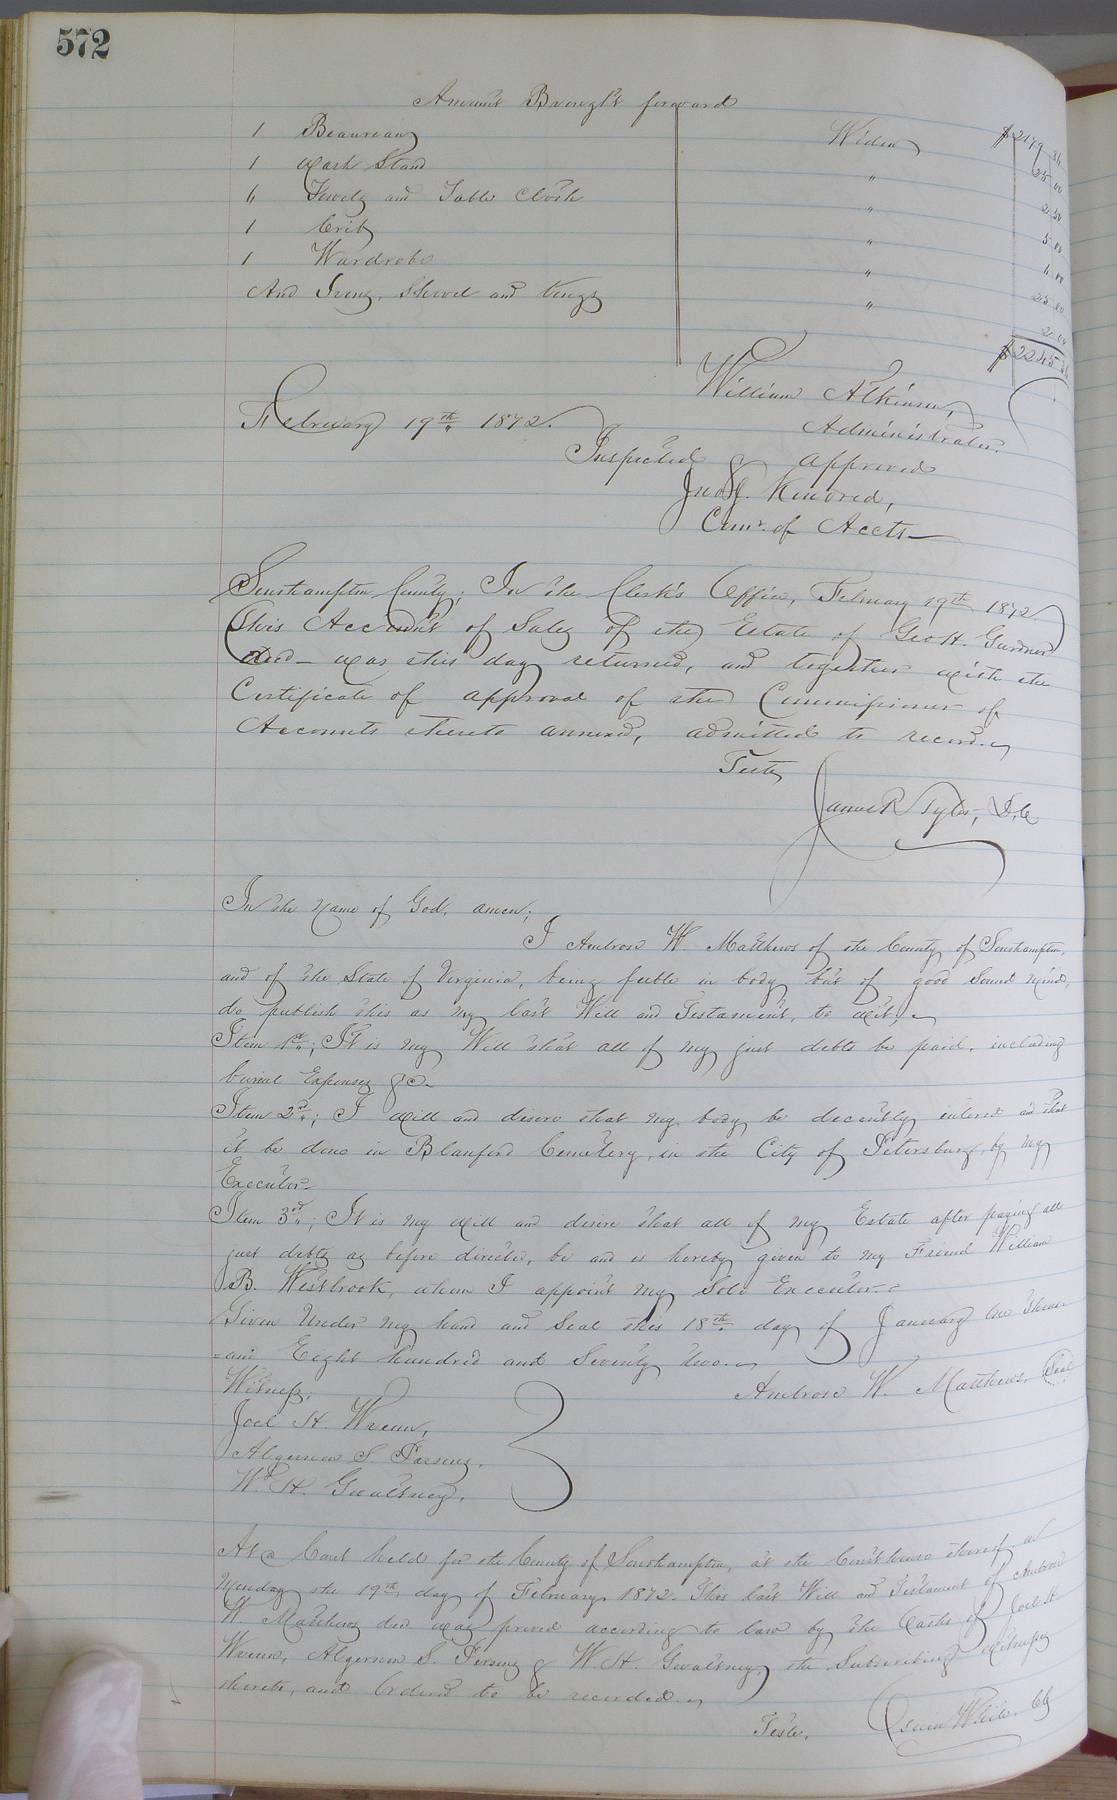 572
Amount Brought forward $2179 36
1 Beaureau Widow 25 00
1 Wash Stand " 2 50
6 Towels and Table Cloth " 5 00
1 Crib " 00
1 Wardrobe " 25 00
And Irons, Shovel and tongs " 2 00
$2245 36
William Atkinson,
Administrator.
February 19th 1872.
Inspected & approved
Jno J. Kindred,
Comr. of Accts
Southampton County; In the Clerk's Office, February 19th 1872.
This Account of Sales of the Estate of Geo H. Gurdner
decd was this day returned, and together with the
Certificate of approval of the Commissioner of
Accounts thereto annexed, admitted to record.
Teste
James R Tyler, D.C.
In the Name of God, amen;
I Ambrose W Matthews of the County of Southampton,
and of the State of Virginia, being feeble in body but of good Sound Mind,
do publish this as my last Will and Testament, to wit;
Item 1st; It is my Will that all of my just debts be paid, including
burial Expenses &c.
Item 2d; I Will and desire that my body be decently intered and that
it be done in Blanford Cemetery, in the City of Petersburg, by my
Executor
Item 3rd; It is my Will and desire that all of my Estate after paying all
just debts as before directed, be and is hereby given to my Friend William
B. Westbrook, whom I appoint my Sole Executor
Given Under my hand and Seal this 18th day of January One thous-
-and Eight hundred and Seventy two.
Ambrose W. Matthews, Seal
Witness;
Joel H. Wrenn,
Algernon S. Parsons,
Wm H. Gwaltney,
At a Court held for the County of Southampton, at the Courthouse thereof, on
Monday the 19th day of February 1872. This last Will and Testament of Ambrose
W. Matthews decd was proved according to law by the Oaths of Joel H.
Wrenn, Algernon S. Persons & W. H. Gwaltney, the Subscribing Witnesses
thereto, and Ordered to be recorded.
Teste, White, Clk